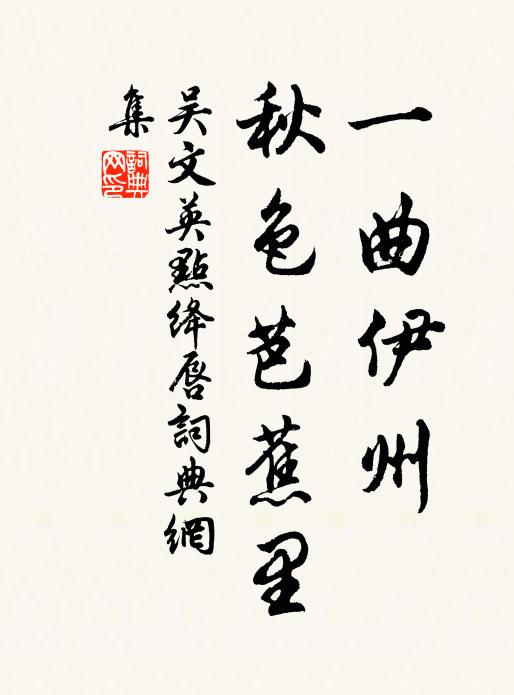 一曲伊州
秋色芭蕉里
吴文英點绛唇詞典網
集
詞典网印